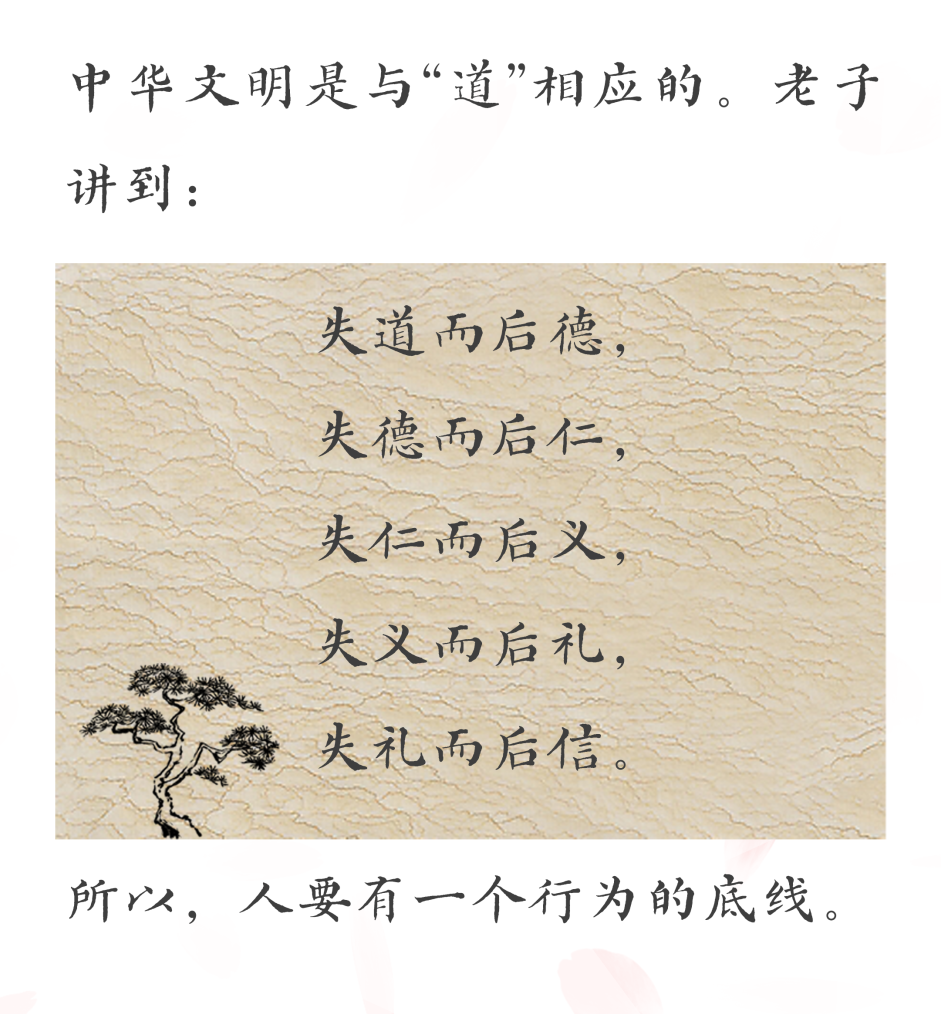 中华文明是与“道”相应的。老子
讲到：
失道而后德，
失德而后仁，
失仁而后义，
失义而后礼，
失礼而后信。
所以，人要有一个行为的底线。